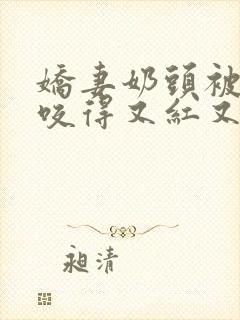 嬌妻奶頭被
咬得又紅又
昶清